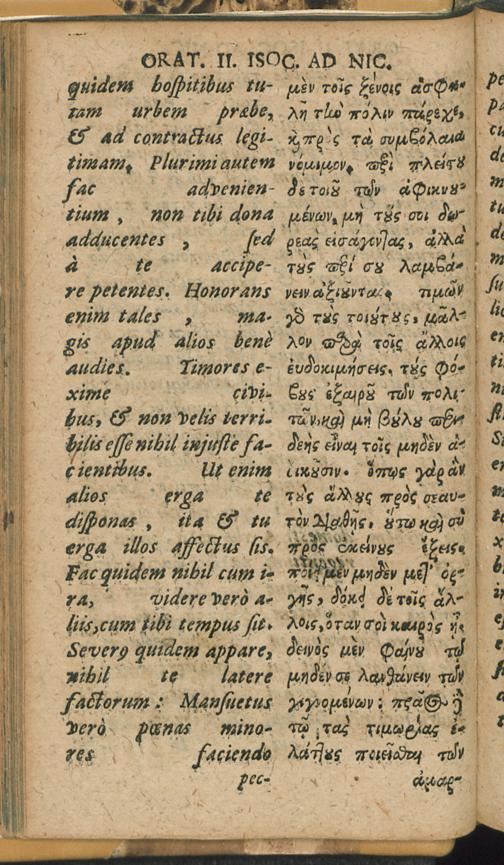 ORAT. II. ISOC. AD NIC.
quidem hoſpitibus tu-
tam urbem præbe,
& ad contractus legi-
timam. Plurimi autem
fac advenien-
tium, non tibi dona
adducentes, ſed
à te accipe-
re petentes. Honorans
enim tales, ma-
gis apud alios benè
audies. Timores e-
xime civi-
bus, & non velis terri-
bilis eſſe nihil injuſte fa-
cientibus. Ut enim
alios erga te
diſponas, ita & tu
erga illos affectus ſis.
Fac quidem nihil cum i-
ra, videre verò a-
liis, cum tibi tempus ſit.
Severꝰ quidem appare,
nihil te latere
factorum: Manſuetus
verò pœnas mino-
res faciendo
pec-
μὲν τοῖς ξένοις ἀσφα-
λῆ τὴν πόλιν πάρεχε,
καὶ πρὸς τὰ συμβόλαια
νόμιμον. περὶ πλείστου
δὲ ποιοῦ τῶν ἀφικνου-
μένων, μὴ τούς σοι δω-
ρεὰς εἰσάγοντας, ἀλλὰ
τοὺς περί σου λαμβά-
νειν ἀξιοῦντας. τιμῶν
γὰρ τοὺς τοιούτους, μᾶλ-
λον παρὰ τοῖς ἄλλοις
εὐδοκιμήσεις. τοὺς φό-
βους ἐξαιροῦ τῶν πολι-
τῶν, καὶ μὴ βούλου περι-
δεὴς εἶναι τοῖς μηδὲν ἀ-
δικοῦσιν. ὅπως γὰρ ἂν
τοὺς ἄλλους πρὸς σεαυ-
τὸν διαθῇς, οὕτω καὶ σὺ
πρὸς ἐκείνους ἕξεις.
ποίει μὲν μηδὲν μετ' ὀρ-
γῆς, δόκει δὲ τοῖς ἄλ-
λοις, ὅταν σοὶ καιρὸς ᾖ.
δεινὸς μὲν φαίνου τῷ
μηδέν σε λανθάνειν τῶν
γιγνομένων: πρᾶος δὲ
τῷ τὰς τιμωρίας ἐ-
λάττους ποιεῖσθαι τῶν
ἁμαρ-